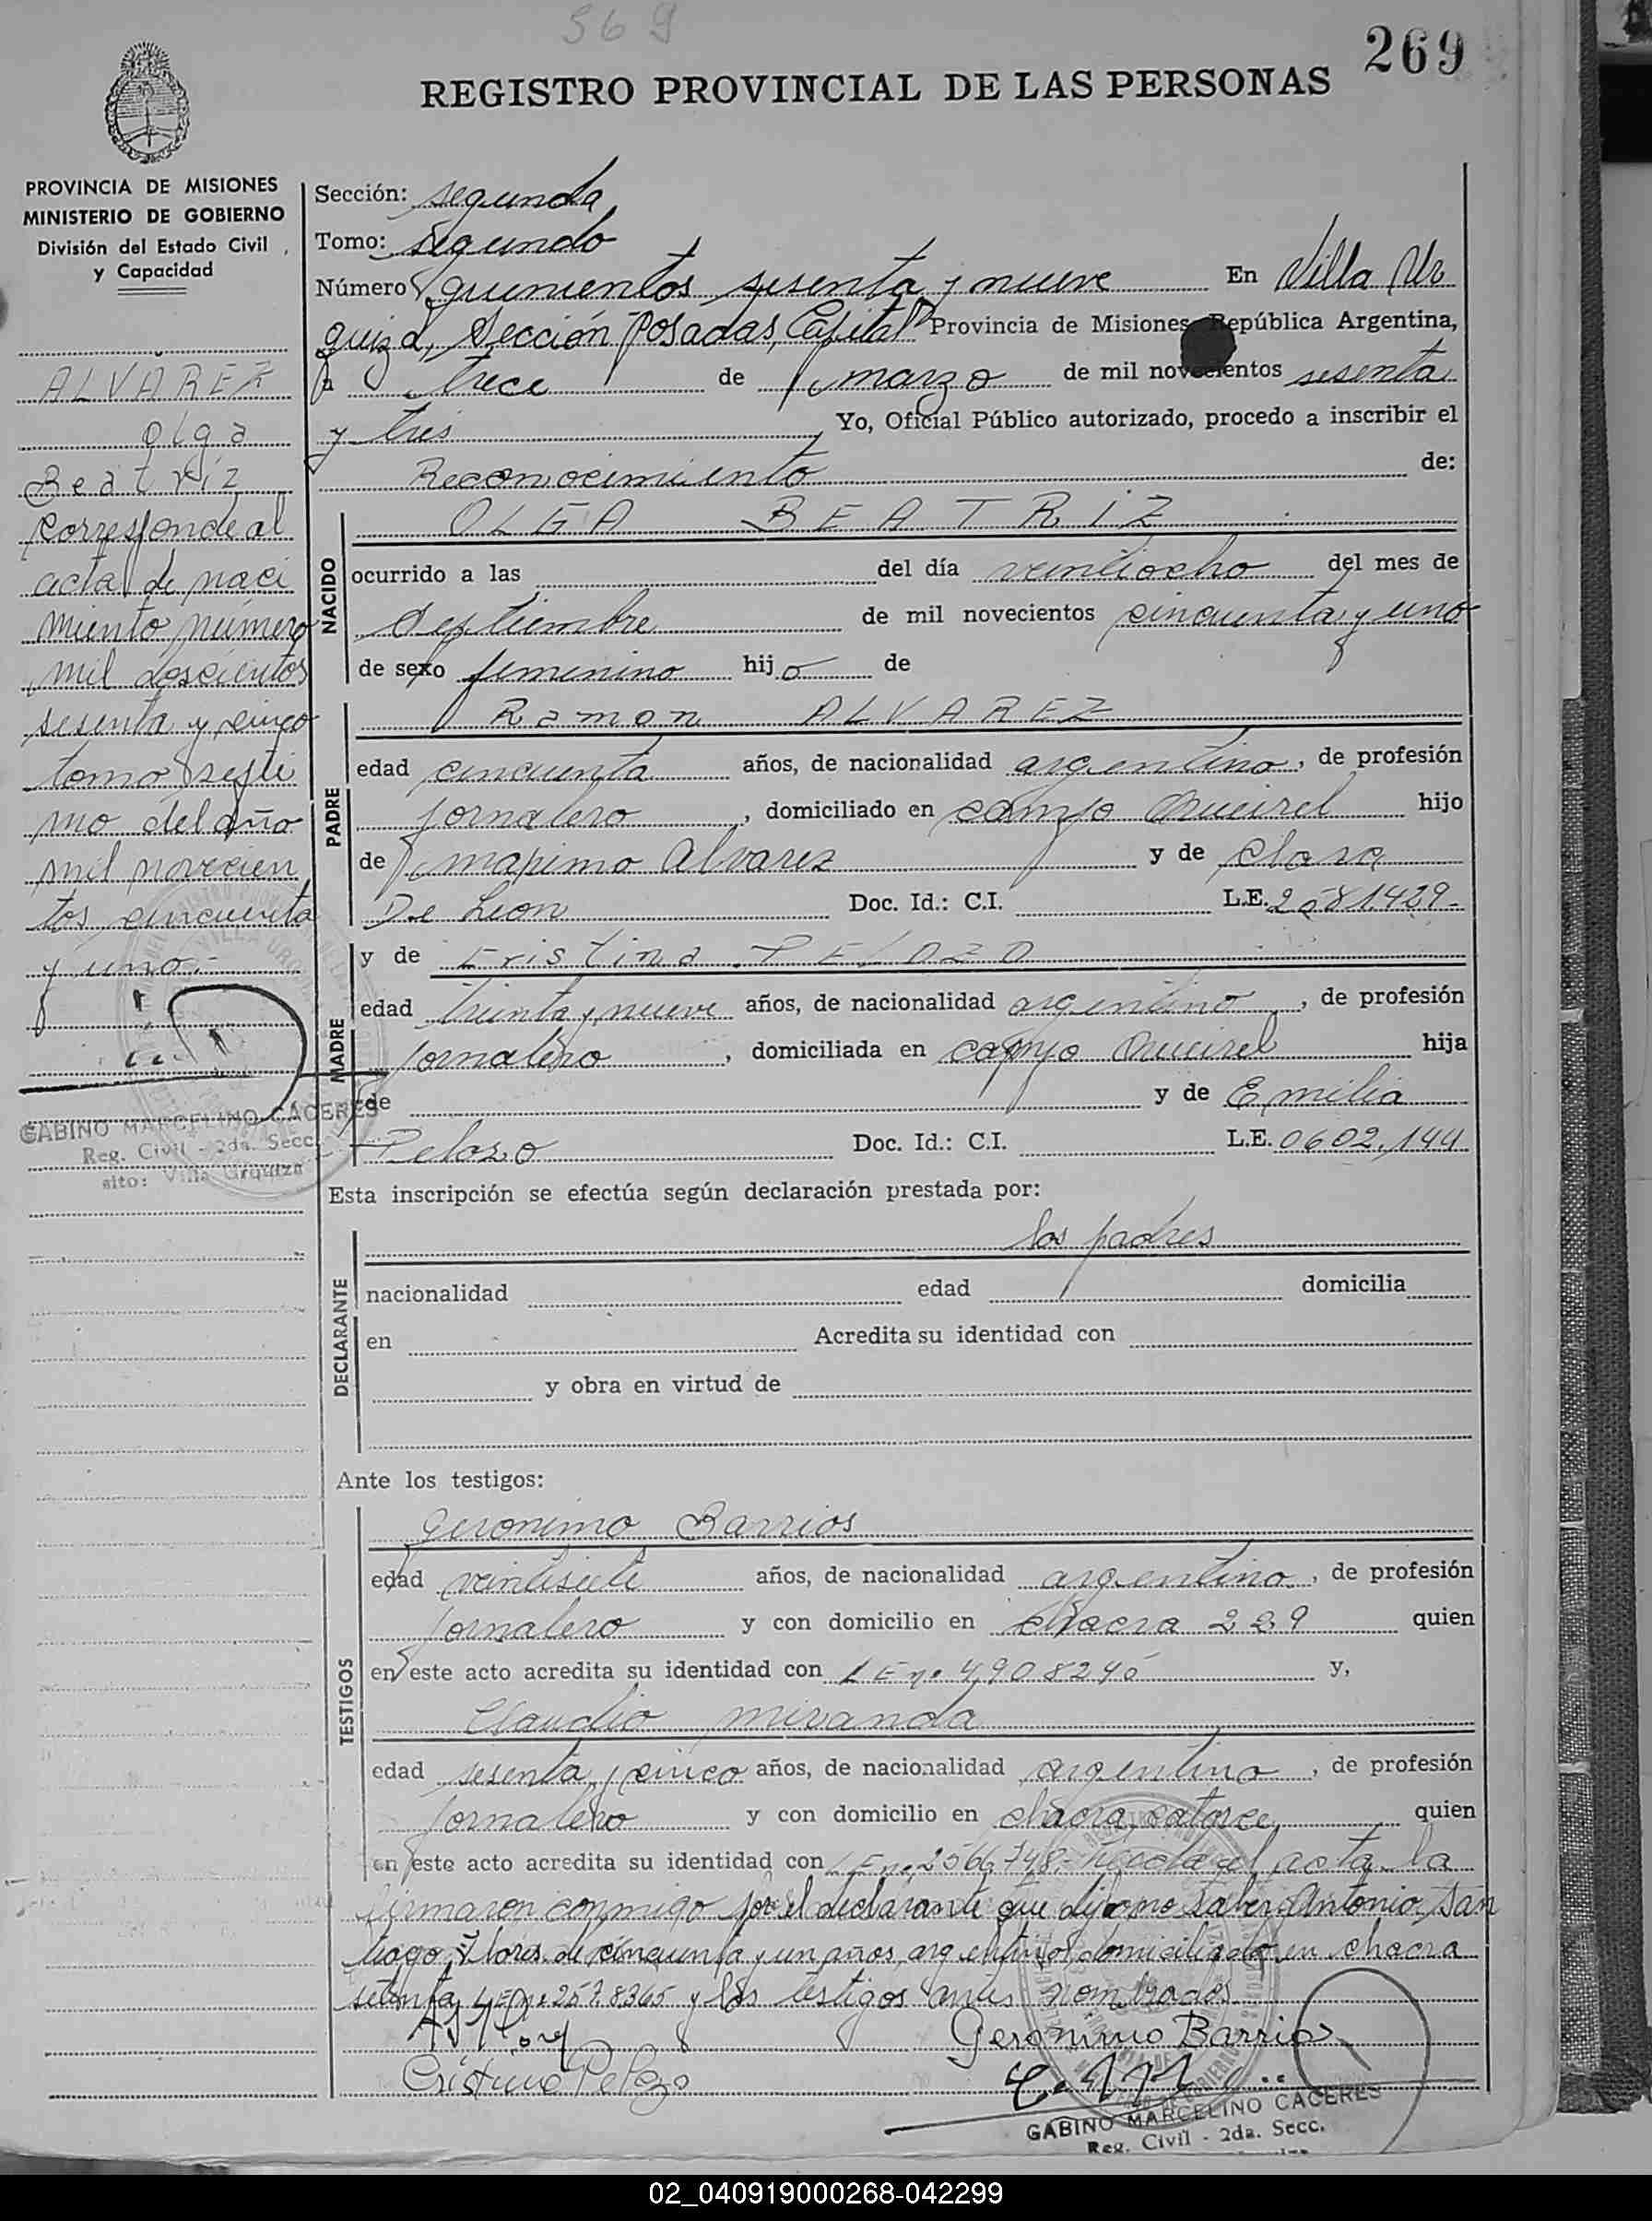 569
269
REGISTRO PROVINCIAL DE LAS PERSONAS
PROVINCIA DE MISIONES
MINISTERIO DE GOBIERNO
División del Estado Civil
y Capacidad
ALVAREZ
Olga
Beatriz
corresponde al
acta de naci
miento número
mil doscientos
sesenta y cinco
tomo septi
mo del año
mil novecien
tos cincuenta
y uno.-
GABINO MARCELINO CACERES
Reg. Civil - 2da. Secc.
sito: Villa Urquiza
Sección: segunda
Tomo: segundo
Número quinientos sesenta y nueve En Villa Ur
quiza, Sección Posadas, Capital Provincia de Misiones República Argentina,
a trece de marzo de mil novecientos sesenta
y tres Yo, Oficial Público autorizado, procedo a inscribir el
Reconocimiento de:
NACIDO
OLGA BEATRIZ
ocurrido a las del día veintiocho del mes de
Septiembre de mil novecientos cincuenta y uno
de sexo femenino hijo de
PADRE
Ramon ALVAREZ
edad cincuenta años, de nacionalidad argentino, de profesión
jornalero, domiciliado en campo hijo
de maximo Alvarez y de Clara
De Leon Doc. Id.: C.I. L.E. 2581.429-
MADRE
y de Cristina PELOZO
edad treinta y nueve años, de nacionalidad argentino, de profesión
jornalero, domiciliada en campo hija
de y de Emilia
Pelozo Doc. Id.: C.I. L.E. 0602.144
Esta inscripción se efectúa según declaración prestada por:
DECLARANTE
los padres
nacionalidad edad domicilia
en Acredita su identidad con
y obra en virtud de
Ante los testigos:
TESTIGOS
Geronimo Barrios
edad veintisiete años, de nacionalidad argentino, de profesión
jornalero y con domicilio en chacra 229 quien
en este acto acredita su identidad con L E nº 4,908240 y,
Claudio miranda
edad sesenta y cinco años, de nacionalidad argentino, de profesión
jornalero y con domicilio en chacra catorce, quien
en este acto acredita su identidad con L E nº 2566,748.- el acta la
firmaron conmigo por el declarante que dijo no saber Antonio San
tiago Flores de cincuenta y un años, argentino domiciliado en chacra
setenta, L E nº 257.8365 y los testigos antes nombrados
Geronimo Barrio
Cristina Pelozo
GABINO MARCELINO CACERES
Reg. Civil - 2da. Secc.
02_040919000268-042299